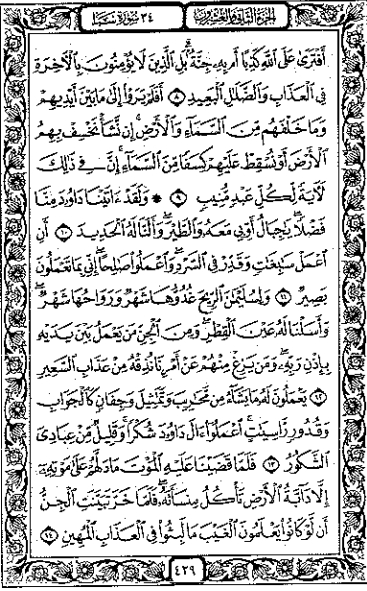 الجزء الثاني والعشرون ٣٤ سورة سبأ
أَفْتَرَىٰ عَلَى ٱللَّهِ كَذِبًا أَم بِهِۦ جِنَّةُۢ بَلِ ٱلَّذِينَ لَا يُؤْمِنُونَ بِٱلْأَخِرَةِ
فِى ٱلْعَذَابِ وَٱلضَّلَٰلِ ٱلْبَعِيدِ ٨ أَفَلَمْ يَرَوْا۟ إِلَىٰ مَا بَيْنَ أَيْدِيهِمْ
وَمَا خَلْفَهُم مِّنَ ٱلسَّمَآءِ وَٱلْأَرْضِ إِن نَّشَأْ نَخْسِفْ بِهِمُ
ٱلْأَرْضَ أَوْ نُسْقِطْ عَلَيْهِمْ كِسَفًا مِّنَ ٱلسَّمَآءِ إِنَّ فِى ذَٰلِكَ
لَأَيَةً لِّكُلِّ عَبْدٍ مُّنِيبٍ ٩ ۞ وَلَقَدْ ءَاتَيْنَا دَاوُۥدَ مِنَّا
فَضْلًا يَٰجِبَالُ أَوِّبِى مَعَهُۥ وَٱلطَّيْرَ وَأَلَنَّا لَهُ ٱلْحَدِيدَ ١٠ أَنِ
ٱعْمَلْ سَٰبِغَٰتٍ وَقَدِّرْ فِى ٱلسَّرْدِ وَٱعْمَلُوا۟ صَٰلِحًا إِنِّى بِمَا تَعْمَلُونَ
بَصِيرٌ ١١ وَلِسُلَيْمَٰنَ ٱلرِّيحَ غُدُوُّهَا شَهْرٌ وَرَوَاحُهَا شَهْرٌ
وَأَسَلْنَا لَهُۥ عَيْنَ ٱلْقِطْرِ وَمِنَ ٱلْجِنِّ مَن يَعْمَلُ بَيْنَ يَدَيْهِ
بِإِذْنِ رَبِّهِۦ وَمَن يَزِغْ مِنْهُمْ عَنْ أَمْرِنَا نُذِقْهُ مِنْ عَذَابِ ٱلسَّعِيرِ
١٢ يَعْمَلُونَ لَهُۥ مَا يَشَآءُ مِن مَّحَٰرِيبَ وَتَمَٰثِيلَ وَجِفَانٍ كَٱلْجَوَابِ
وَقُدُورٍ رَّاسِيَٰتٍ ٱعْمَلُوٓا۟ ءَالَ دَاوُۥدَ شُكْرًا وَقَلِيلٌ مِّنْ عِبَادِىَ
ٱلشَّكُورُ ١٣ فَلَمَّا قَضَيْنَا عَلَيْهِ ٱلْمَوْتَ مَا دَلَّهُمْ عَلَىٰ مَوْتِهِۦٓ
إِلَّا دَآبَّةُ ٱلْأَرْضِ تَأْكُلُ مِنسَأَتَهُۥ فَلَمَّا خَرَّ تَبَيَّنَتِ ٱلْجِنُّ
أَن لَّوْ كَانُوا۟ يَعْلَمُونَ ٱلْغَيْبَ مَا لَبِثُوا۟ فِى ٱلْعَذَابِ ٱلْمُهِينِ ١٤
٤٢٩